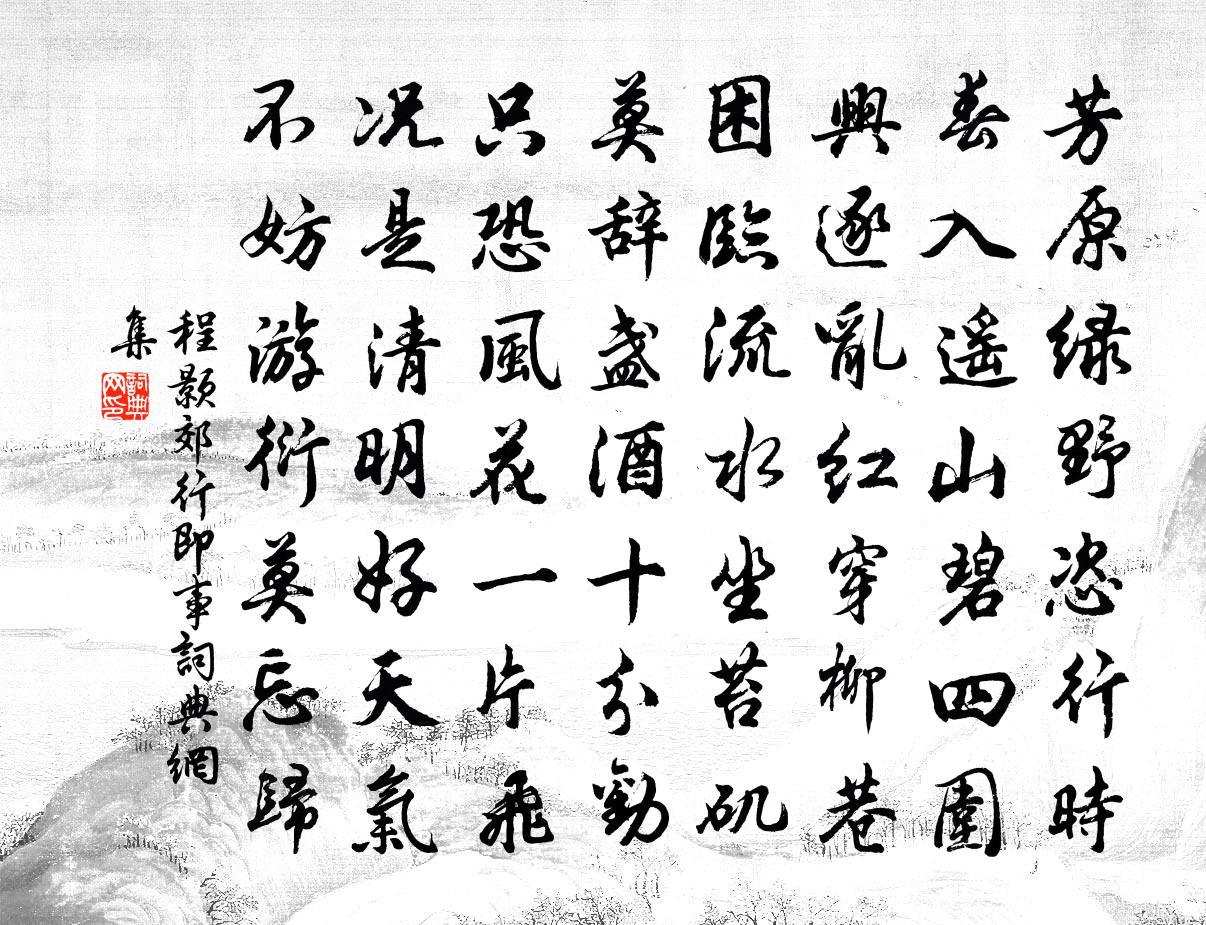 芳原绿野恣行時
春入遥山碧四圍
興逐亂红穿柳巷
困臨流水坐苔矶
莫辞盏酒十分勸
只恐風花一片飛
况是清明好天氣
不妨游衍莫忘歸
程颢郊行即事詞典網
集
詞典
网印